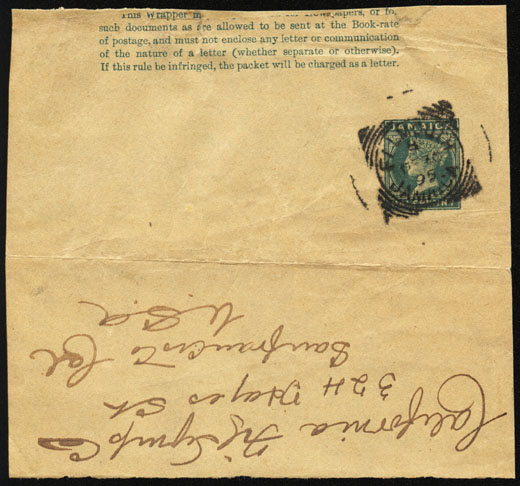 This Wrapper m papers, or fo
such documents as are allowed to be sent at the Book-rate
of postage, and must not enclose any letter or communication
of the nature of a letter (whether separate or otherwise).
If this rule be infringed, the packet will be charged as a letter.
JAMAICA
California Fig Syrup Co
324 Hayes St
Sanfrancisco Cal
U.S.a